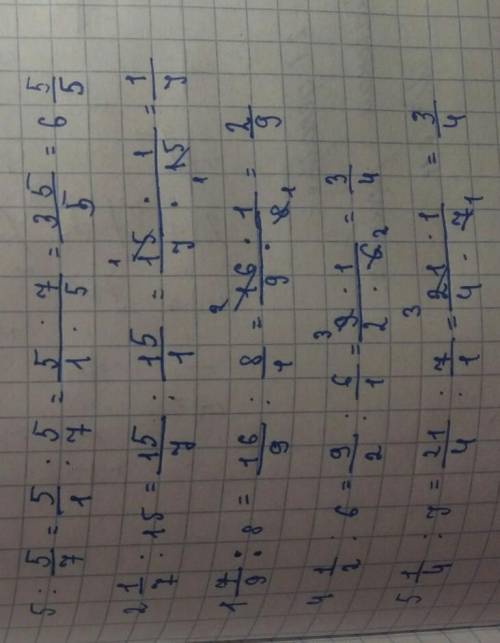 5 : 5/7 = 5/1 : 5/7 = 5 · 7 / 1 · 5 = 35/5 = 6 5/5
2 1/7 : 15 = 15/7 : 15/1 = 15 · 1 / 7 · 15 = 1/7
1 7/9 : 8 = 16/9 : 8/1 = 16 · 1 / 9 · 8 = 2/9
4 1/2 : 6 = 9/2 : 6/1 = 9 · 1 / 2 · 6 = 3/4
5 1/4 : 7 = 21/4 : 7/1 = 21 · 1 / 4 · 7 = 3/4